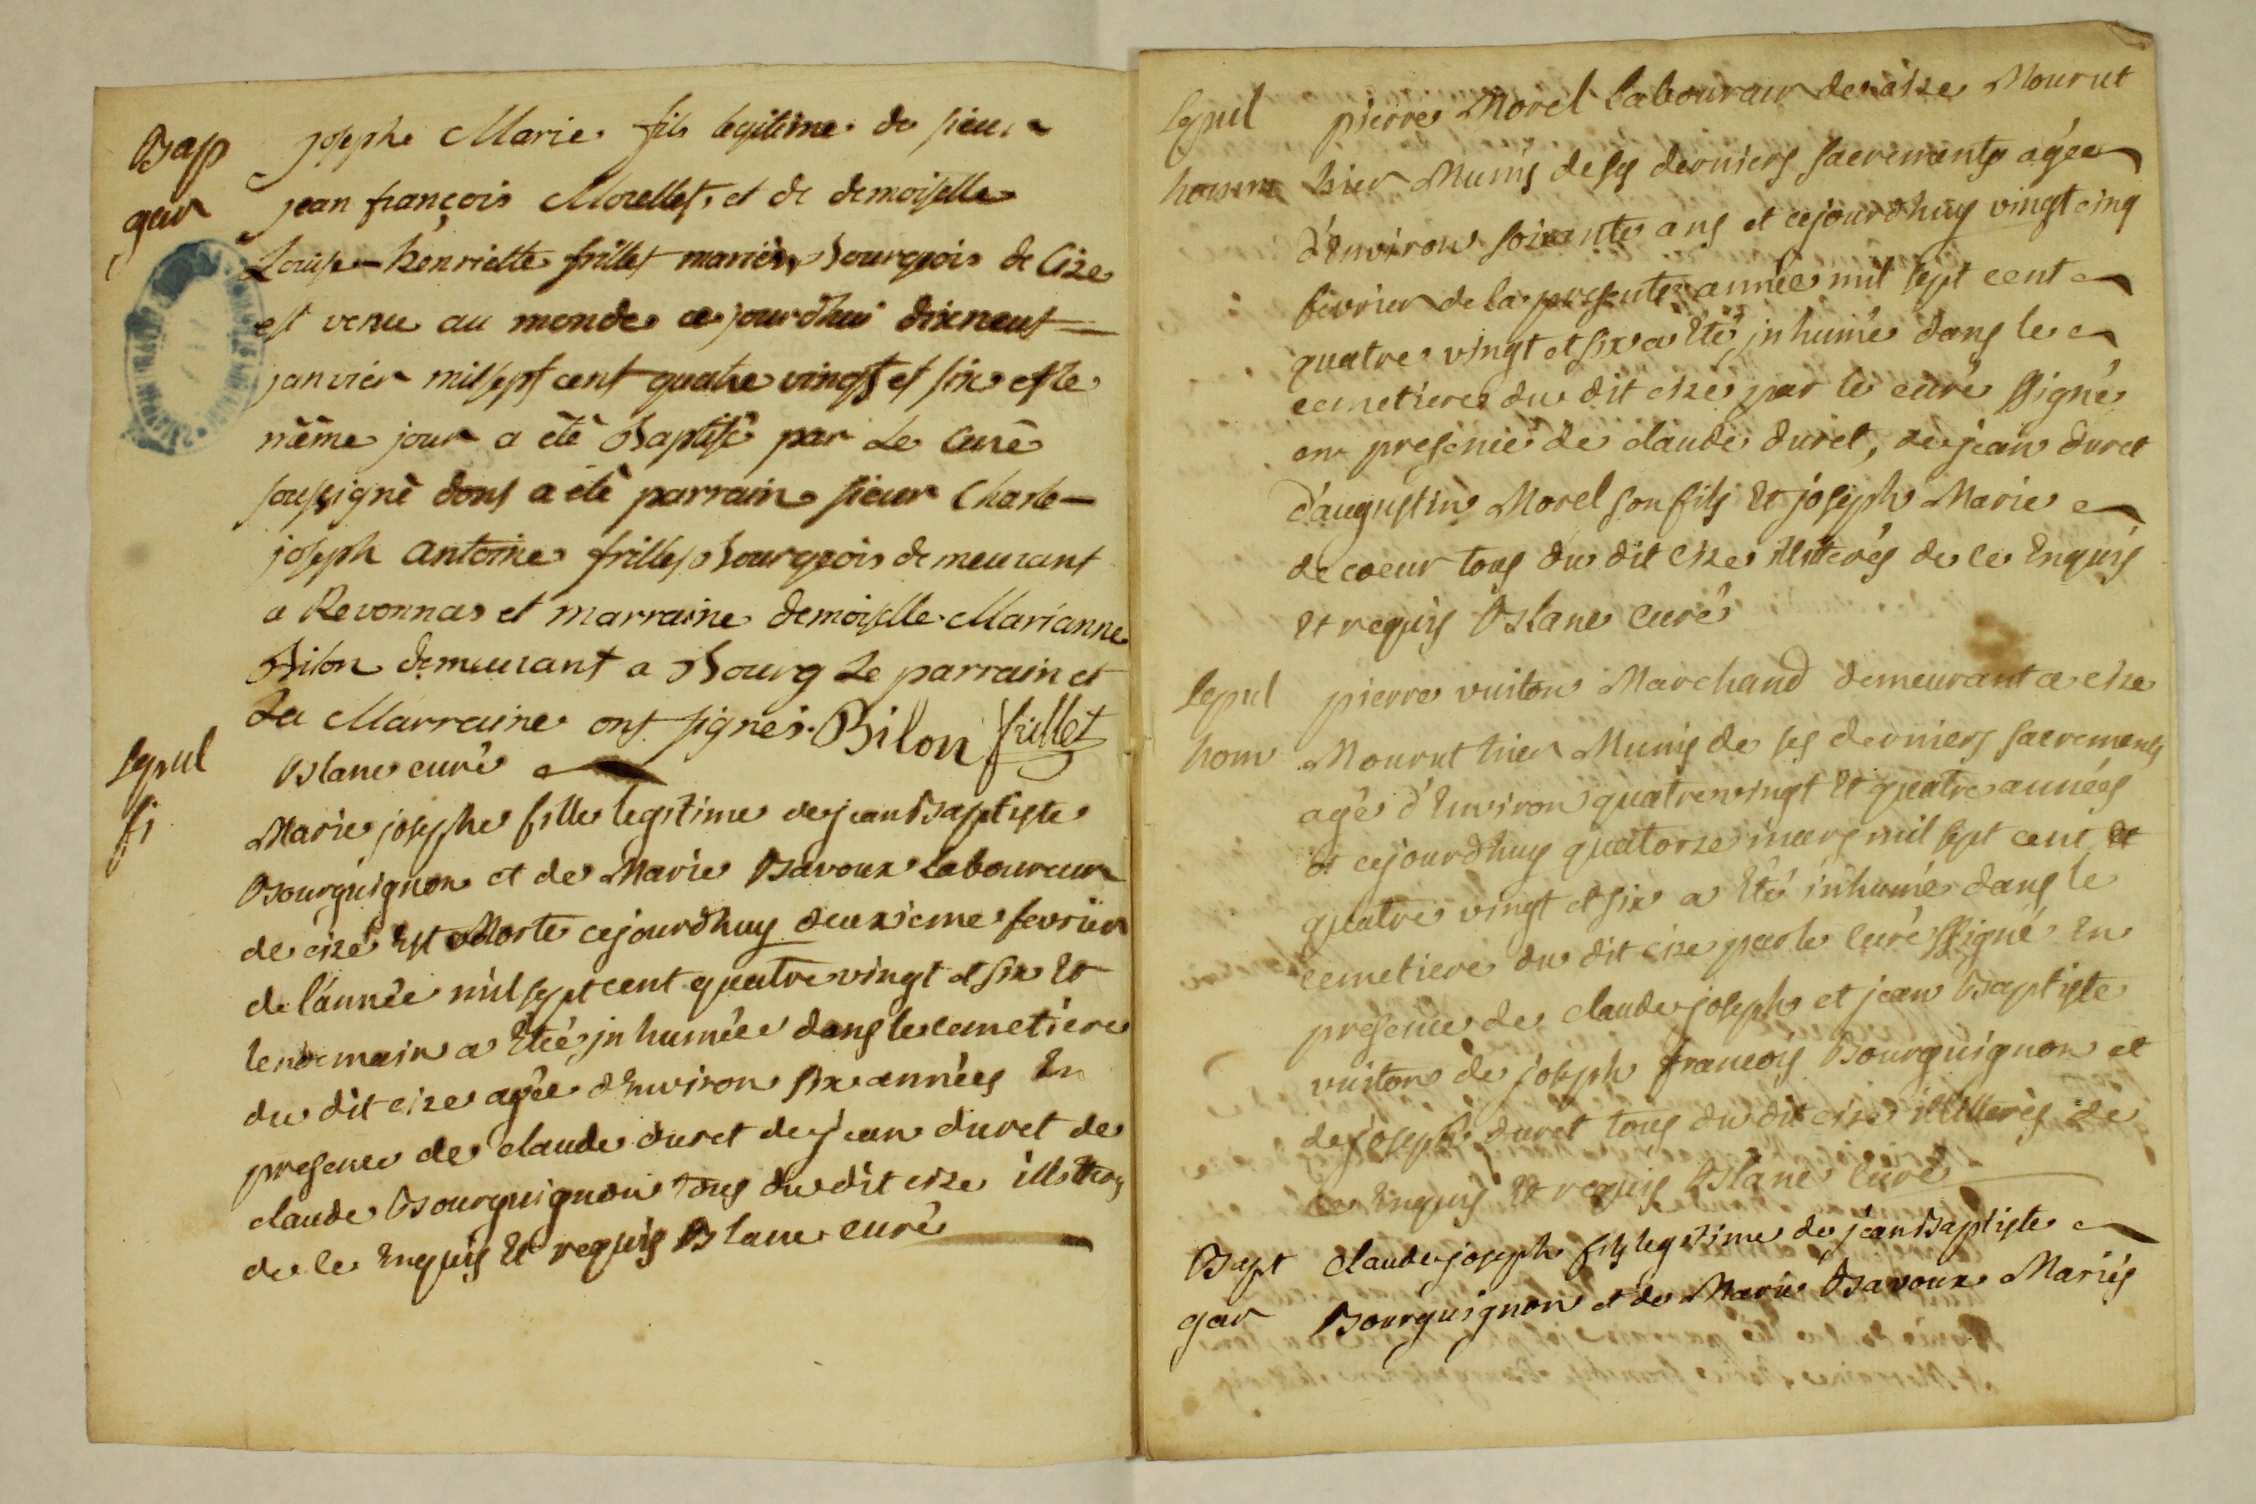 Bap
gar
joseph Marie fils legitime du sieur
jean françois Morellet, et de demoiselle
Louise-henriette frillet mariés, bourgeois de Cize
est venu au monde ce jourd'hui dixneuf
janvier mil sept cent quatre vingt et six et le
même jour a été Baptisé par Le Curé
soussigné dont a été parrain sieur Charle-
joseph antoine frillet bourgeois demeurant
a Revonnas et marraine demoiselle Marianne
Bilon demeurant a Bourg Le parrain et
La Marraine ont signés. Bilon frillet
Blanc curé
Sepul
fi
Marie josephe fille legitime de jean Baptiste
Bourguignon et de Marie Bavoux Laboureur
de cize Est Morte cejourdhuy deuxieme fevrier
de l'année mil sept cent quatre vingt et six Et
lendemain a Eté jnhumée dans le cemetière
du dit cize agée d'Environ six années En
presence de claude duret de jean duret de
claude Bourguignon tous du dit cize illiterés
de ce Enquis Et requis Blanc curé
Sepul
homme
pierre Morel Laboureur de cize Mourut
hier Munis de ses derniers sacrements agée
d'Environ soixante ans et cejourdhuy vingt cinq
fevrier de la presente année mil sept cent
quatre vingt et six a Eté jnhumé dans le
cemetiere du dit cize par le curé ssigné
en presence de claude duret, de jean duret
d'augustin Morel son fils Et joseph Marie
de coeur tous du dit cize illiterés de ce Enquis
Et requis Blanc Curé
Sepul
hom
pierre vuiton Marchand demeurant a cize
Mourut hier Munis de ses derniers sacrements
agé d'Environ quatre vingt Et quatre années
et cejourdhuy quatorze mars mil sept cent Et
quatre vingt et six a Eté inhumé dans le
cemetiere du dit cize par le curé ssigné En
presence de claude joseph et jean Baptiste
vuiton de joseph françois Bourguignon et
de joseph duret tous du dit cize illitterés de
ce Enquis Et requis Blanc Curé
Bapt
gar
claude joseph fils legitime de jean Baptiste
Bourguignon et de Marie Bavoux Mariés